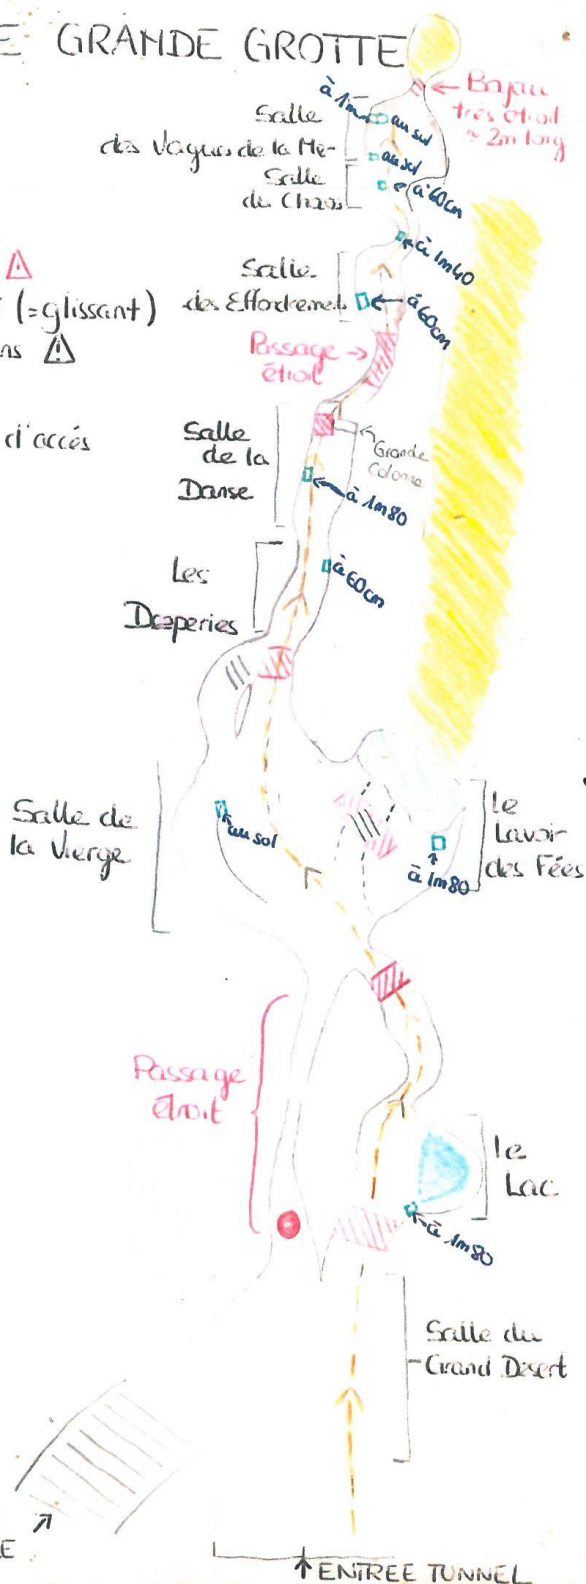 E GRANDE GROTTE
← Bajau
très étroit
≈ 2m long
à 1m
au sol
Salle
des Vagues de la Me-
au sol
Salle
du Chaos
à 60cm
à 1m40
⚠
(=glissant)
ns ⚠
Salle
des Effondrement
à 60cm
Passage →
étroit
d'accés
Salle
de la
Danse
Grande
Colonne
à 1m80
Les
Draperies
à 60cm
Salle de
la Vierge
au sol
le
Lavoir
des Fées
à 1m80
Passage
étroit
le
Lac
à 1m80
Salle du
Grand Désert
E
↑ ENTREE TUNNEL